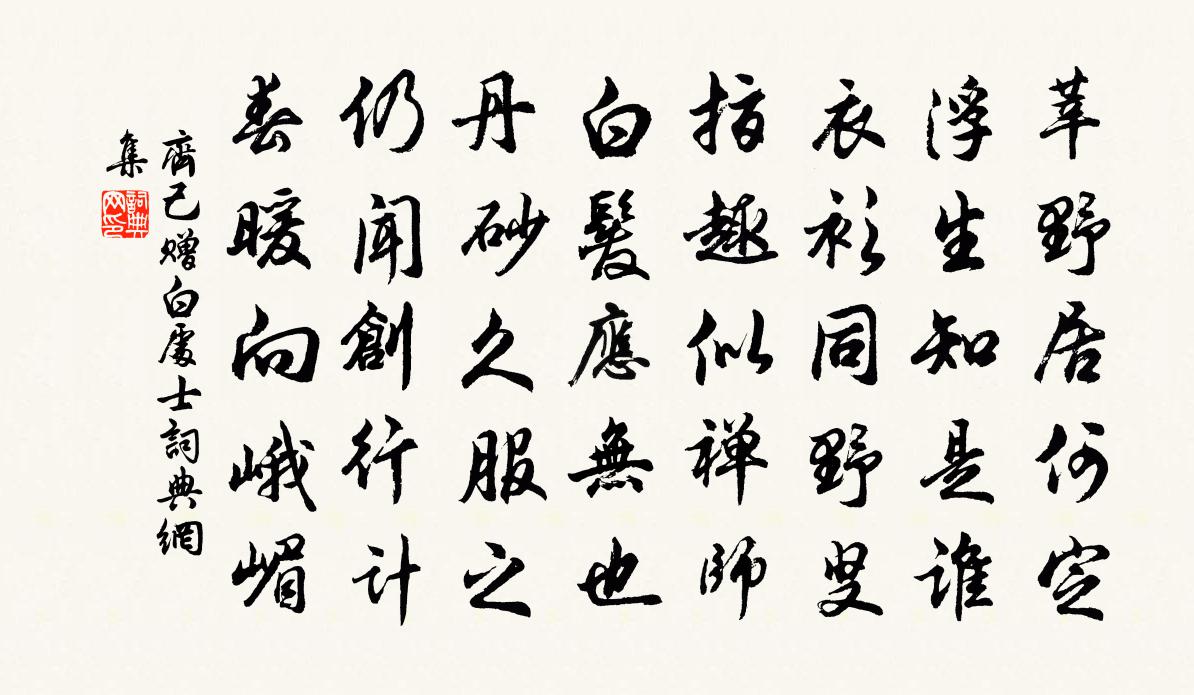 莘野居何定
浮生知是誰
衣衫同野叟
指趣似禅師
白髮應無也
丹砂久服之
仍聞創行計
春暖向峨嵋
齊己贈白處士詞典網
集
詞典网印